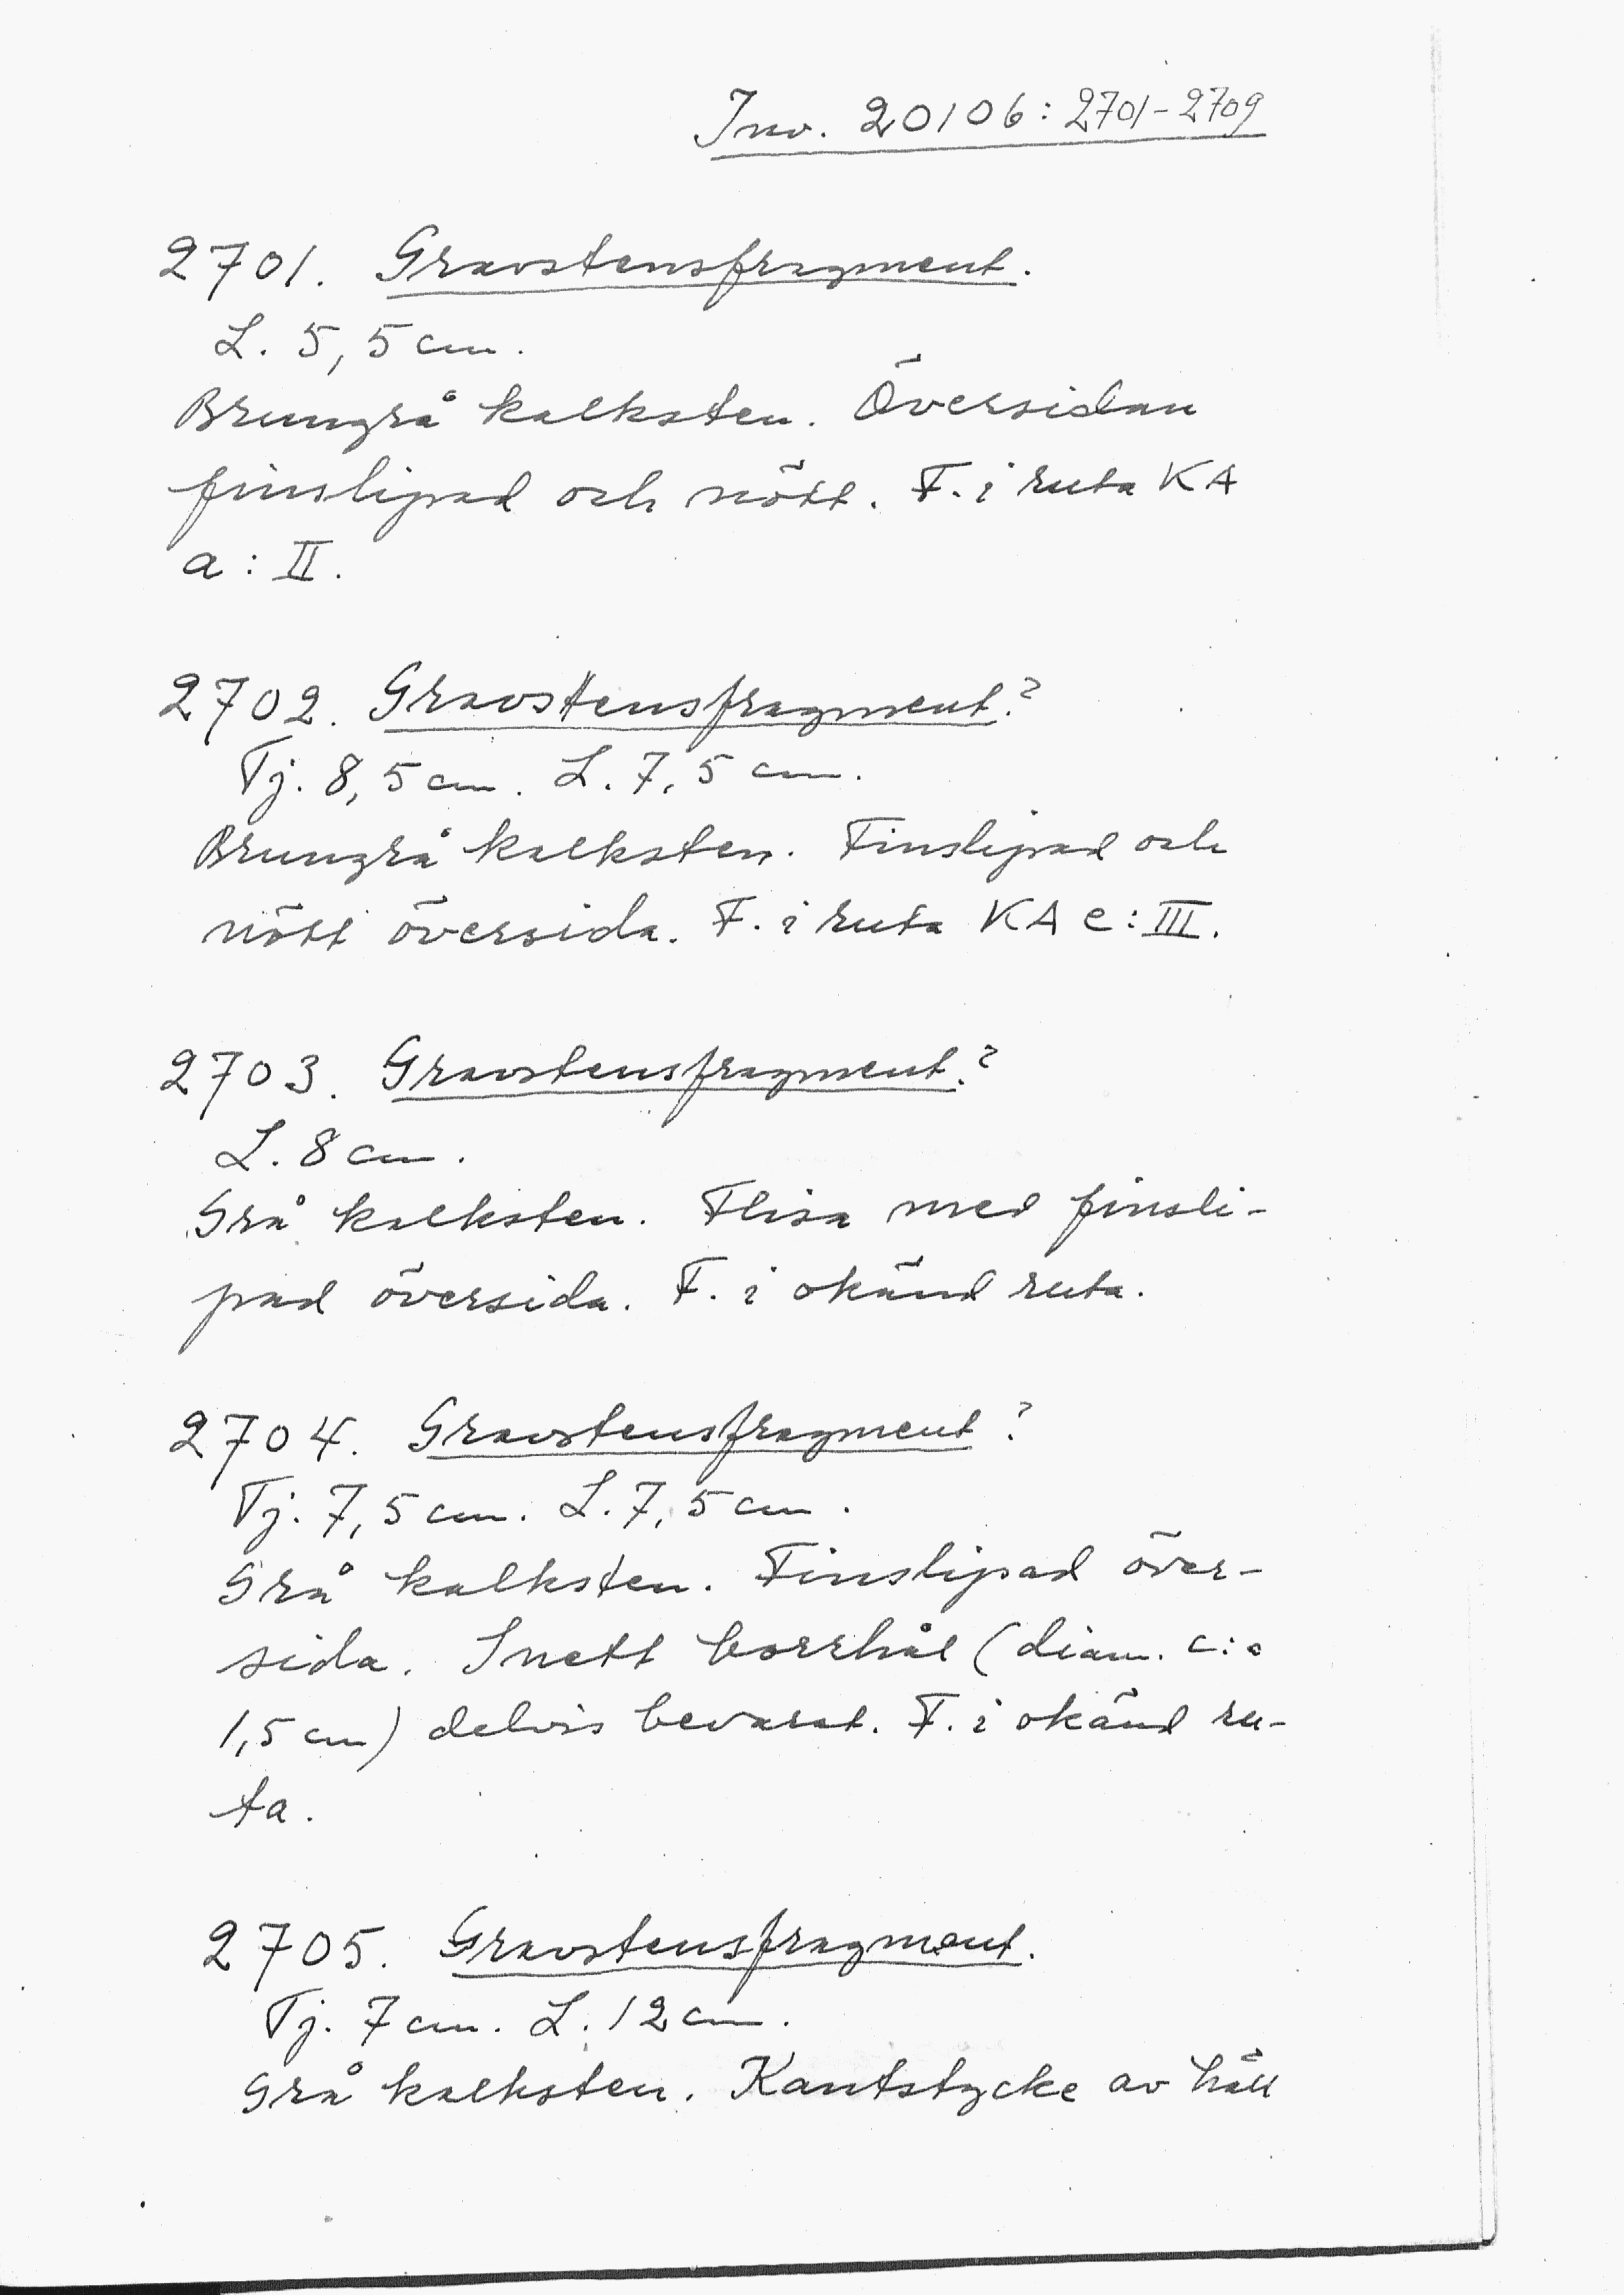 Inv. 20106: 2701-2709
2701. Gravstensfragment.
L. 5,5 cm.
Brungrå kalksten. Översidan
finslipad och nött. F. i ruta KA
a: II.
2702. Gravstensfragment?
Tj. 8,5 cm. L. 7,5 cm.
Brungrå kalksten. Finslipad och
nött översida. F. i ruta KA e: III.
2703. Gravstensfragment?
L. 8 cm.
Grå kalksten. Flisa med finsli-
pad översida. F. i okänd ruta.
2704. Gravstensfragment?
Tj. 7,5 cm. L. 7,5 cm.
Grå kalksten. Finslipad över-
sida. I nett borrhål (diam. c:a
1,5 cm) delvis bevarat. F. i okänd ru-
ta.
2705. Gravstensfragment.
Tj. 7 cm. L. 12 cm.
Grå kalksten. Kantstycke av häll